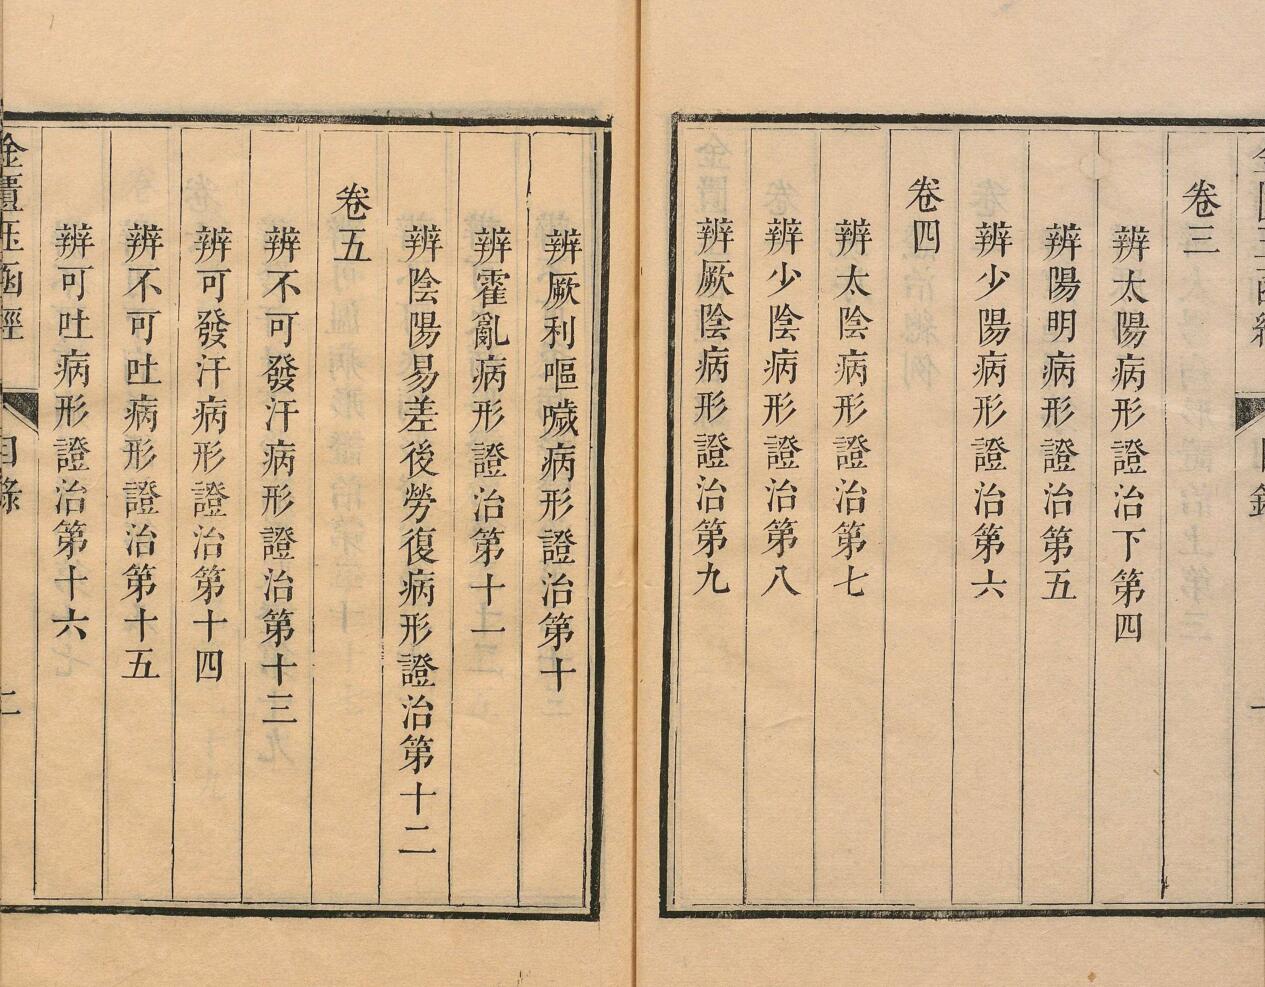 卷三
辨太陽病形證治下第四
辨陽明病形證治第五
辨少陽病形證治第六
卷四
辨太陰病形證治第七
辨少陰病形證治第八
辨厥陰病形證治第九
辨厥利嘔噦病形證治第十
辨霍亂病形證治第十一
辨陰陽易差後勞復病形證治第十二
卷五
辨不可發汗病形證治第十三
辨可發汗病形證治第十四
辨不可吐病形證治第十五
辨可吐病形證治第十六
金匱玉函經 目錄 二